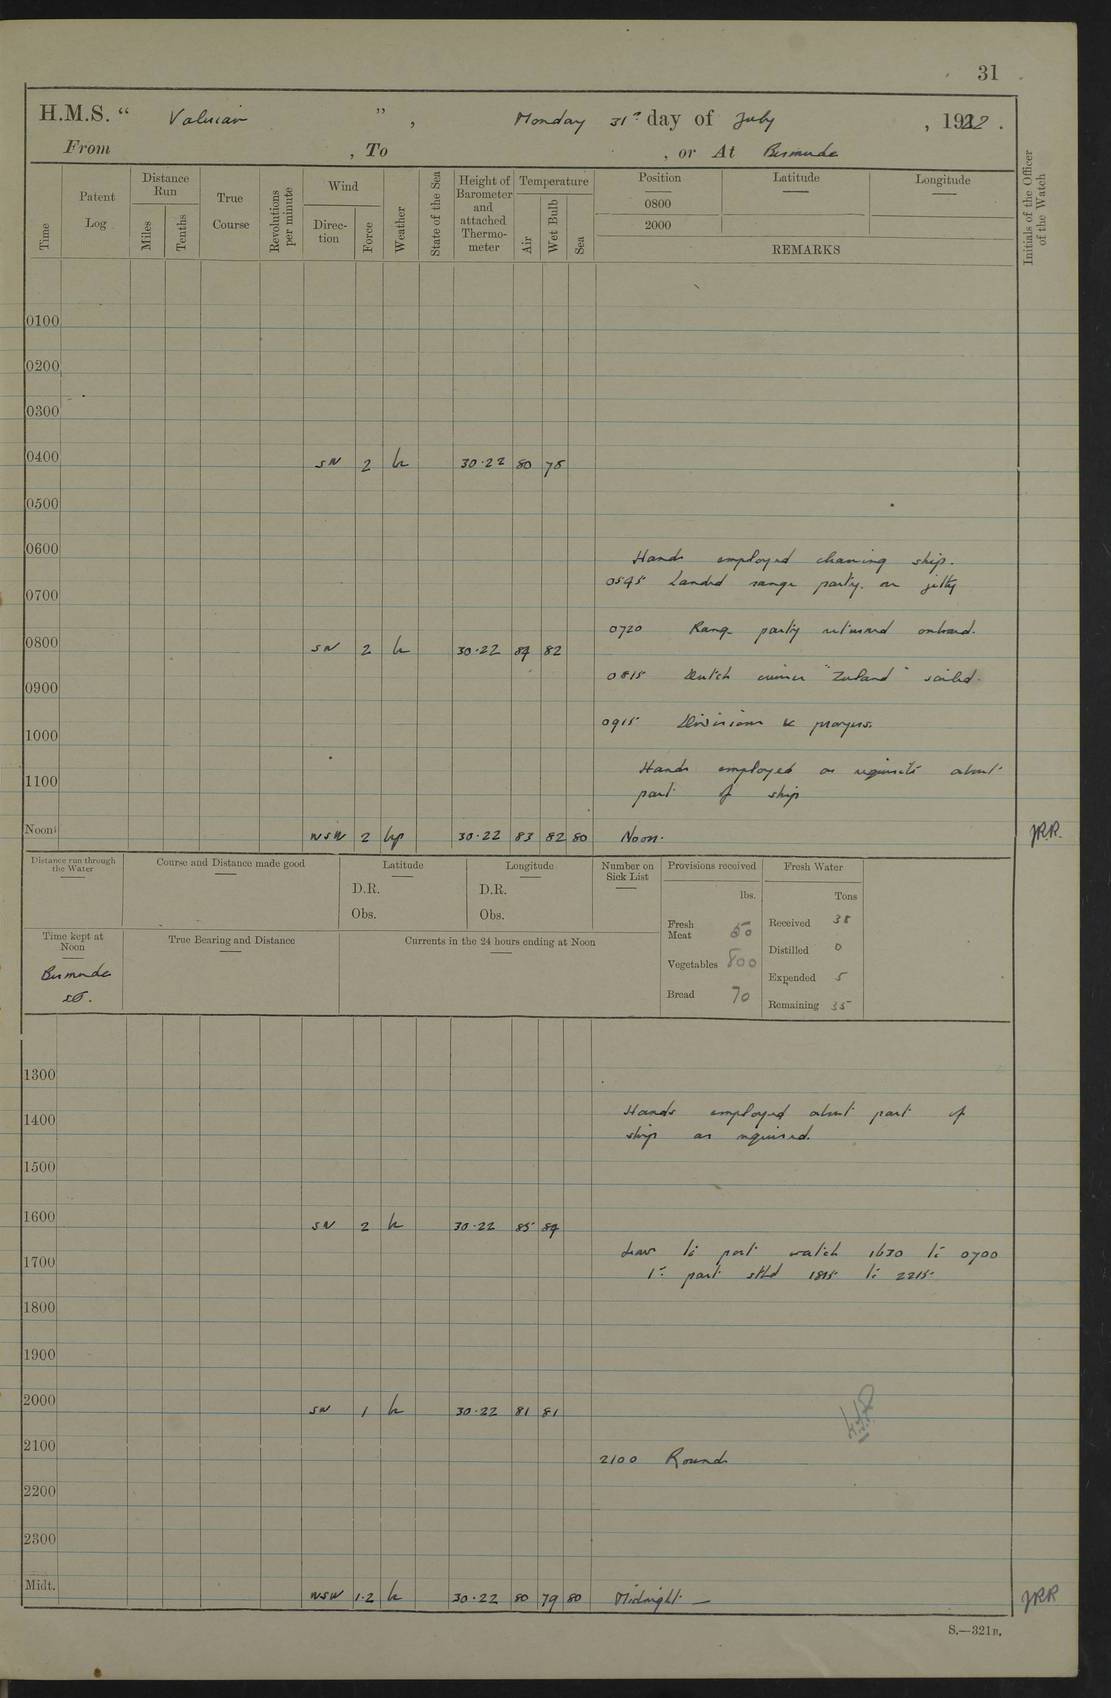 31
H.M.S. “ Valerian ” , Monday 31st day of July , 1922 .
From , To , or At Bermuda
Time
Patent Log
Distance Run
Miles
Tenths
True Course
Revolutions per minute
Wind
Direction
Force
Weather
State of the Sea
Height of Barometer and attached Thermometer
Temperature
Air
Wet Bulb
Sea
Position
0800
2000
Latitude
Longitude
REMARKS
Initials of the Officer of the Watch
0100
0200
0300
0400 SW 2 b 30·22 80 78
0500
0600
Hands employed cleaning ship.
0545 Landed range party on jetty
0700
0720 Range party returned onboard.
0800 SW 2 b 30·22 84 82
0815 Dutch cruiser "Zeeland" sailed.
0900
0915 Divisions & prayers.
1000
Hands employed as requisite about
1100
part of ship
Noon WSW 2 bp 30·22 83 82 80 Noon. JRR.
Distance run through the Water
Course and Distance made good
Latitude
D.R.
Obs.
Longitude
D.R.
Obs.
Number on Sick List
Provisions received
lbs.
Fresh Meat 50
Vegetables 800
Bread 70
Fresh Water
Tons
Received 38
Distilled 0
Expended 5
Remaining 35
Time kept at Noon
Bermuda
True Bearing and Distance
Currents in the 24 hours ending at Noon
1300
1400
Hands employed about part of
ship as required.
1500
1600 SW 2 b 30·22 85 84
Leave to port watch 1630 to 0700
1700
1st part stbd 1815 to 2215
1800
1900
2000 SW 1 b 30·22 81 81
2100
2100 Rounds
2200
2300
Midt. WSW 1·2 b 30·22 80 79 80 Midnight — JRR
S.—321B.